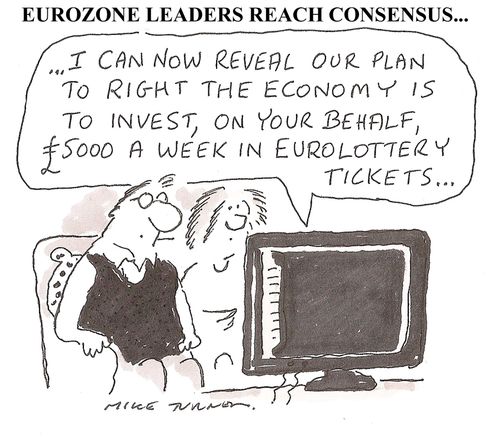 EUROZONE LEADERS REACH CONSENSUS...
...I CAN NOW REVEAL OUR PLAN
TO RIGHT THE ECONOMY IS
TO INVEST, ON YOUR BEHALF,
£5000 A WEEK IN EUROLOTTERY
TICKETS...
MIKE TURNER.